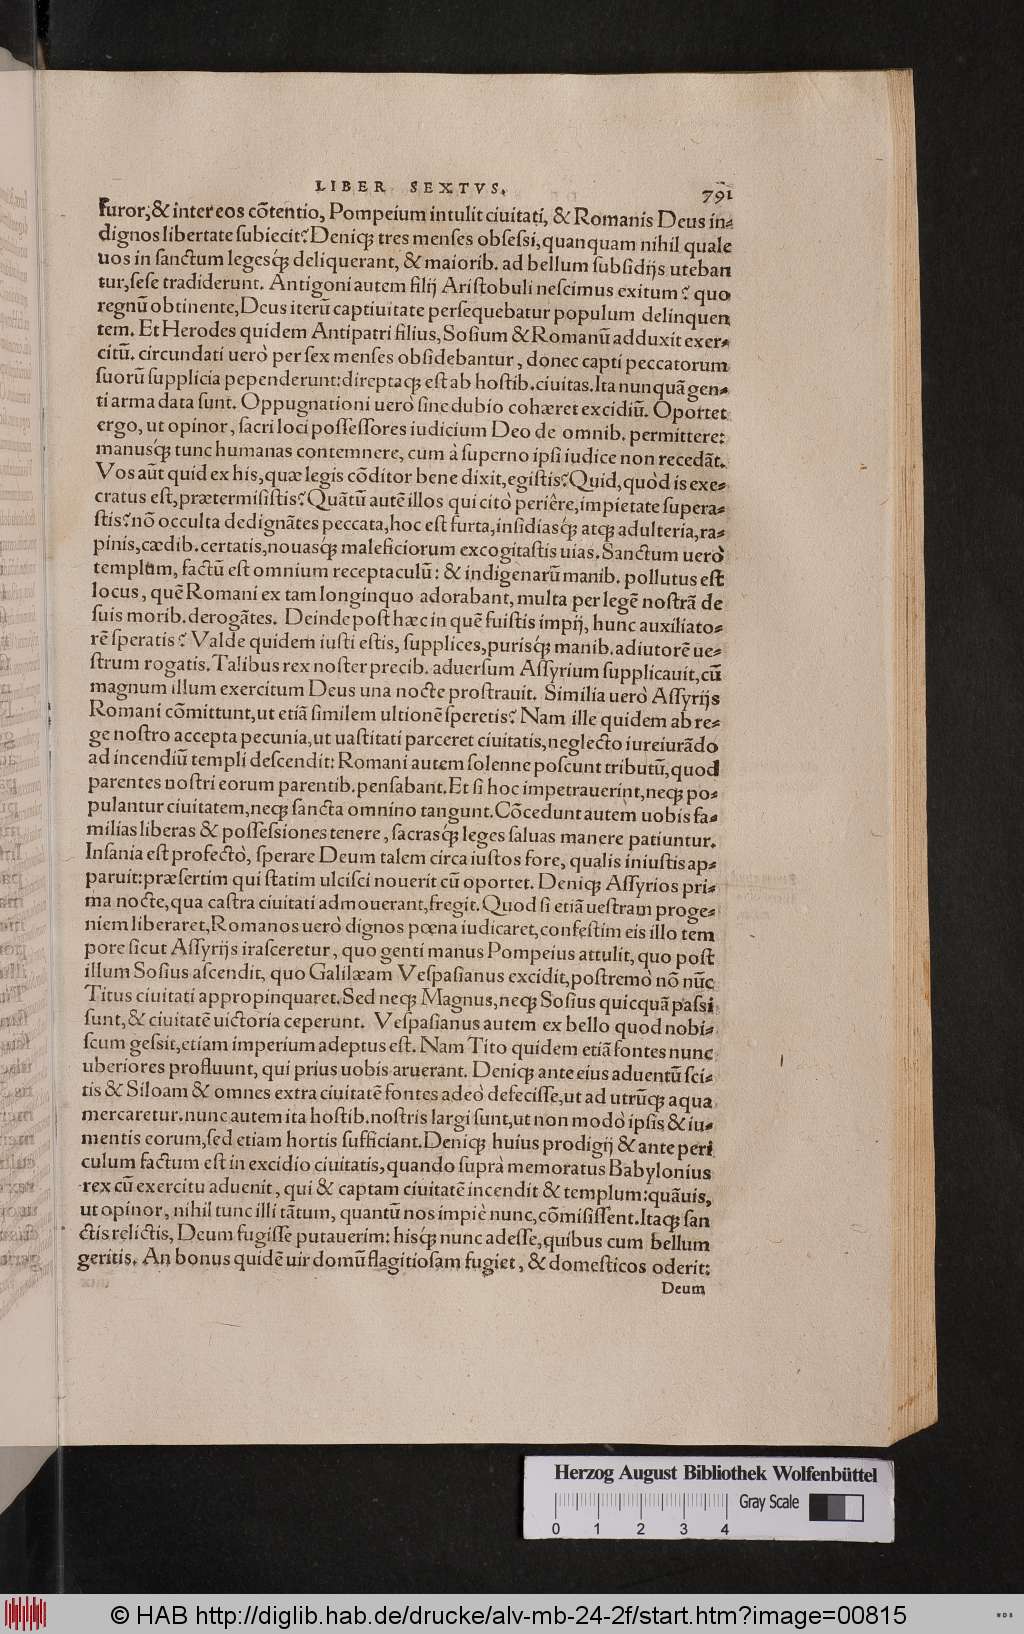 LIBER SEXTVS. 791
furor, & inter eos cõtentio, Pompeium intulit ciuitati, & Romanis Deus in-
dignos libertate subiecit? Deniq; tres menses obsessi, quanquam nihil quale
uos in sanctum legesq́; deliquerant, & maiorib. ad bellum subsidijs uteban
tur, sese tradiderunt. Antigoni autem filij Aristobuli nescimus exitum? quo
regnũ obtinente, Deus iterũ captiuitate persequebatur populum delinquen
tem. Et Herodes quidem Antipatri filius, Sosium & Romanũ adduxit exer-
citũ. circundati uerò per sex menses obsidebantur, donec capti peccatorum
suorũ supplicia pependerunt: direptaq; est ab hostib. ciuitas. Ita nunquã gen-
ti arma data sunt. Oppugnationi uerò sine dubio cohæret excidiũ. Oportet
ergo, ut opinor, sacri loci possessores iudicium Deo de omnib. permittere:
manusq́; tunc humanas contemnere, cum à superno ipsi iudice non recedãt.
Vos aũt quid ex his, quæ legis cõditor bene dixit, egistis? Quid, quòd is exe-
cratus est, prætermisistis? Quãtũ autẽ illos qui citò periêre, impietate supera-
stis? nõ occulta dedignãtes peccata, hoc est furta, insidiasq́; atq; adulteria, ra-
pinis, cædib. certatis, nouasq́; maleficiorum excogitastis uias. Sanctum uerò
templum, factũ est omnium receptaculũ: & indigenarũ manib. pollutus est
locus, quẽ Romani ex tam longinquo adorabant, multa per legẽ nostrã de
suis morib. derogãtes. Deinde post hæc in quẽ fuistis impij, hunc auxiliato-
rẽ speratis? Valde quidem iusti estis, supplices, purisq́; manib. adiutorẽ ue-
strum rogatis. Talibus rex noster precib. aduersum Assyrium supplicauit, cũ
magnum illum exercitum Deus una nocte prostrauit. Similia uerò Assyrijs
Romani cõmittunt, ut etiã similem ultionẽ speretis? Nam ille quidem ab re-
ge nostro accepta pecunia, ut uastitati parceret ciuitatis, neglecto iureiurãdo
ad incendiũ templi descendit: Romani autem solenne poscunt tributũ, quod
parentes nostri eorum parentib. pensabant. Et si hoc impetrauerint, neq; po-
pulantur ciuitatem, neq; sancta omnino tangunt. Cõcedunt autem uobis fa-
milias liberas & possessiones tenere, sacrasq́; leges saluas manere patiuntur.
Insania est profectò, sperare Deum talem circa iustos fore, qualis iniustis ap-
paruit: præsertim qui statim ulcisci nouerit cũ oportet. Deniq; Assyrios pri-
ma nocte, qua castra ciuitati admouerant, fregit. Quod si etiã uestram proge-
niem liberaret, Romanos uerò dignos pœna iudicaret, confestim eis illo tem
pore sicut Assyrijs irasceretur, quo genti manus Pompeius attulit, quo post
illum Sosius ascendit, quo Galilæam Vespasianus excidit, postremò nõ nũc
Titus ciuitati appropinquaret. Sed neq; Magnus, neq; Sosius quicquã passi
sunt, & ciuitatẽ uictoria ceperunt. Vespasianus autem ex bello quod nobi-
scum gessit, etiam imperium adeptus est. Nam Tito quidem etiã fontes nunc
uberiores profluunt, qui prius uobis aruerant. Deniq; ante eius aduentũ sci-
tis & Siloam & omnes extra ciuitatẽ fontes adeò defecisse, ut ad utrũq; aqua
mercaretur. nunc autem ita hostib. nostris largi sunt, ut non modò ipsis & iu-
mentis eorum, sed etiam hortis sufficiant. Deniq; huius prodigij & ante peri
culum factum est in excidio ciuitatis, quando suprà memoratus Babylonius
rex cũ exercitu aduenit, qui & captam ciuitatẽ incendit & templum: quãuis,
ut opinor, nihil tunc illi tãtum, quantũ nos impiè nunc, cõmisissent. Itaq; san
ctis relictis, Deum fugisse putauerim: hisq́; nunc adesse, quibus cum bellum
geritis. An bonus quidẽ uir domũ flagitiosam fugiet, & domesticos oderit:
Deum
Herzog August Bibliothek Wolfenbüttel
Gray Scale
0 1 2 3 4
© HAB http://diglib.hab.de/drucke/alv-mb-24-2f/start.htm?image=00815